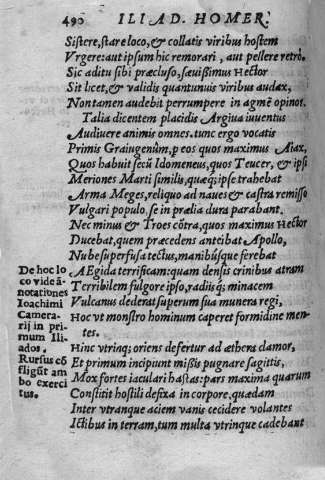 490 ILIAD. HOMER.
Sistere, stare loco, & collatis viribus hostem
Vrgere: aut ipsum hic remorari, aut pellere retrò.
Sic aditu sibi præcluso, sæuißimus Hector
Sit licet, & validis quantumuis viribus audax,
Non tamen audebit perrumpere in agmē opinor.
Talia dicentem placidis Argiua iuuentus
Audiuere animis omnes. tunc ergo vocatis
Primis Graiugenûm, p eos quos maximus Aiax,
Quos habuit secū Idomeneus, quos Teucer, & ipse
Meriones Marti similis, quæq; ipse trahebat
Arma Meges, reliquo ad naues & castra remisso
Vulgari populo, se in prælia dura parabant.
Nec minus & Troes cōtra, quos maximus Hector
Ducebat, quem præcedens anteibat Apollo,
Nube superfusa tectus, manibúsque ferebat
De hoc lo
co vide ā-
notationes
Ioachimi
Camera-
rij in pri-
mum Ili-
ados.
Rursus cō
fligūt am
bo exerci
tus.
AEgida terrificam: quam densis crinibus atram
Terribilem fulgore ipso, radiisq; minacem
Vulcanus dederat superum sua munera regi,
Hoc vt monstro hominum caperet formidine men-
tes.
Hinc vtrinq; oriens defertur ad æthera clamor,
Et primum incipiunt mißis pugnare sagittis,
Mox fortes iaculari hastas: pars maxima quarum
Constitit hostili defixa in corpore, quædam
Inter vtranque aciem vanis cecidere volantes
Ictibus in terram, tum multa vtrinque cadebant